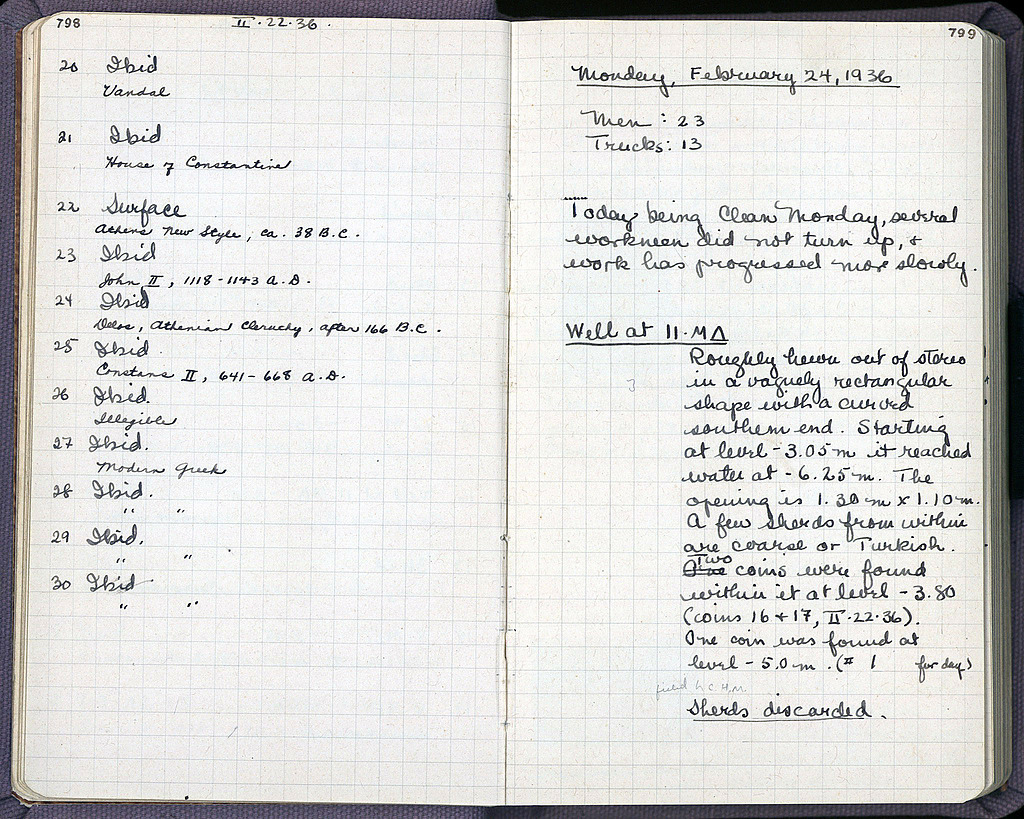 798
II·22·36.
20 Ibid
Vandal
21 Ibid
House of Constantine
22 Surface
Athens New Style, ca. 38 B.C.
23 Ibid
John II, 1118-1143 A.D.
24 Ibid
Delos, Athenian Cleruchy, after 166 B.C.
25 Ibid.
Constans II, 641-668 A.D.
26 Ibid.
Illegible
27 Ibid.
Modern Greek
28 Ibid.
" "
29 Ibid.
" "
30 Ibid
" "
799
Monday, February 24, 1936
Men : 23
Trucks: 13
Today being Clean Monday, several
workmen did not turn up, &
work has progressed more slowly.
Well at 11·ΜΔ
Roughly hewn out of stereo
in a vaguely rectangular
3
shape with a curved
southern end. Starting
at level -3.05m it reached
water at -6.25m. The
opening is 1.30m x 1.10m.
A few sherds from within
are coarse or Turkish.
Two
One coins were found
within it at level -3.80
(coins 16 + 17, II·22·36).
One coin was found at
level -5.0m. (# 1 for day)
Sherds discarded.